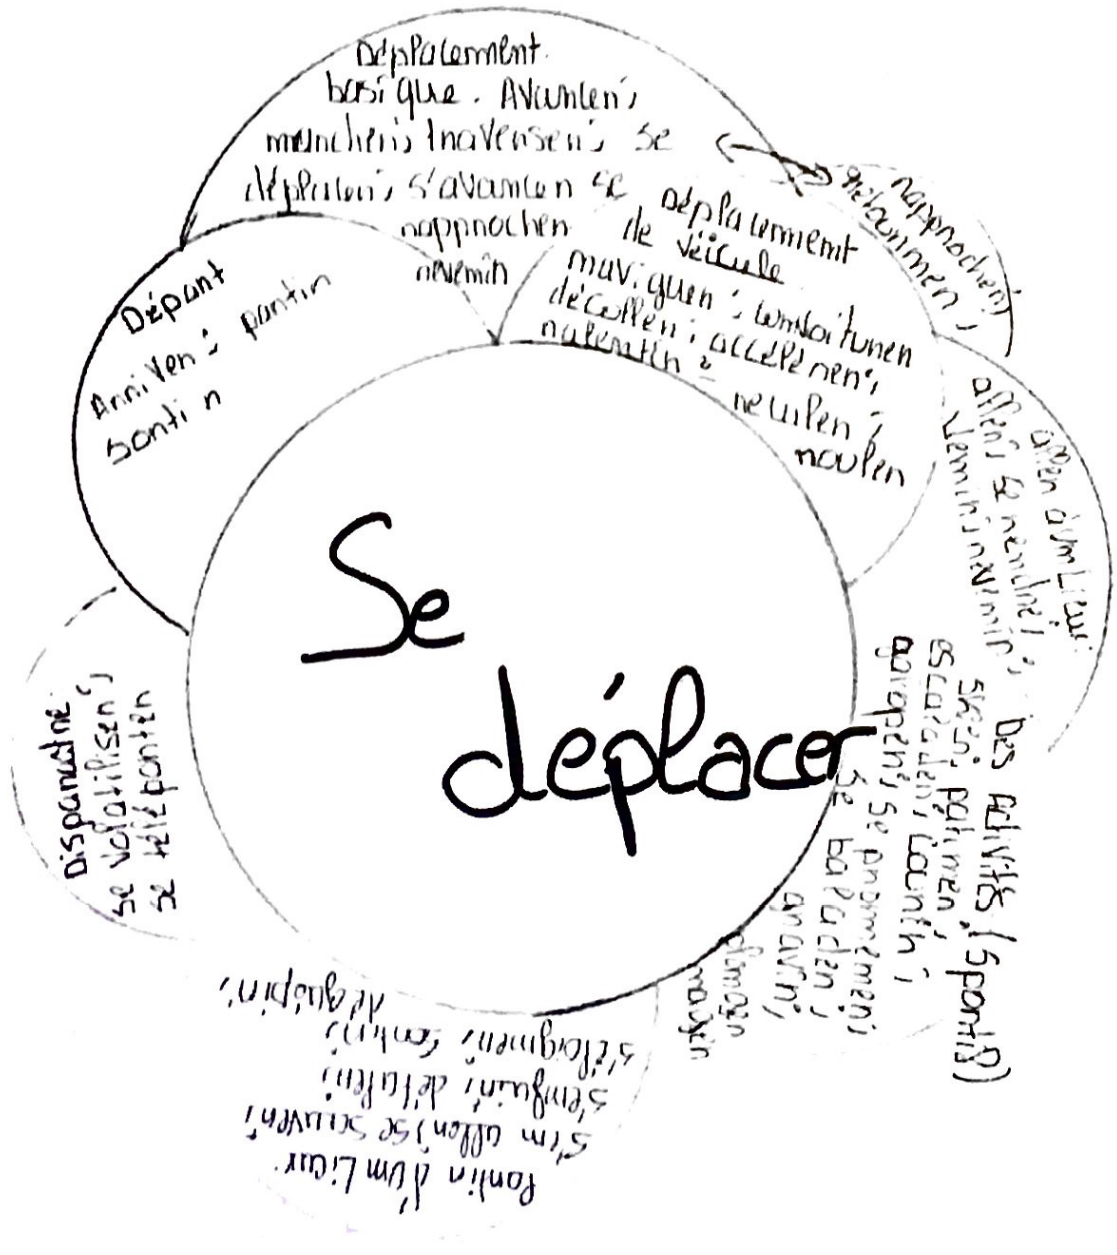 Se
déplacer
Déplacement
basique. Avancer;
marcher; traverser; se
déplacer; s'avancer se
rapprocher
revenir
Départ
Arriver; partir
sortir
Déplacement
de véicule
naviguer; conduire
décoller; accélérer;
ralentir; reculer;
rouler
rapprocher;
retourner;
aller à un Lieu:
aller; se rendre;
venir; revenir;
Des activités (sportif)
skier; patiner;
escalader; courir;
galoper; se promener;
se balader;
gravir;
plonger
nager
Partir d'un Lieu:
s'en aller; se sauver;
s'enfuir; détaler;
s'éloigner; sortir;
déguerpir;
Disparaitre:
se volatiliser;
se téléporter